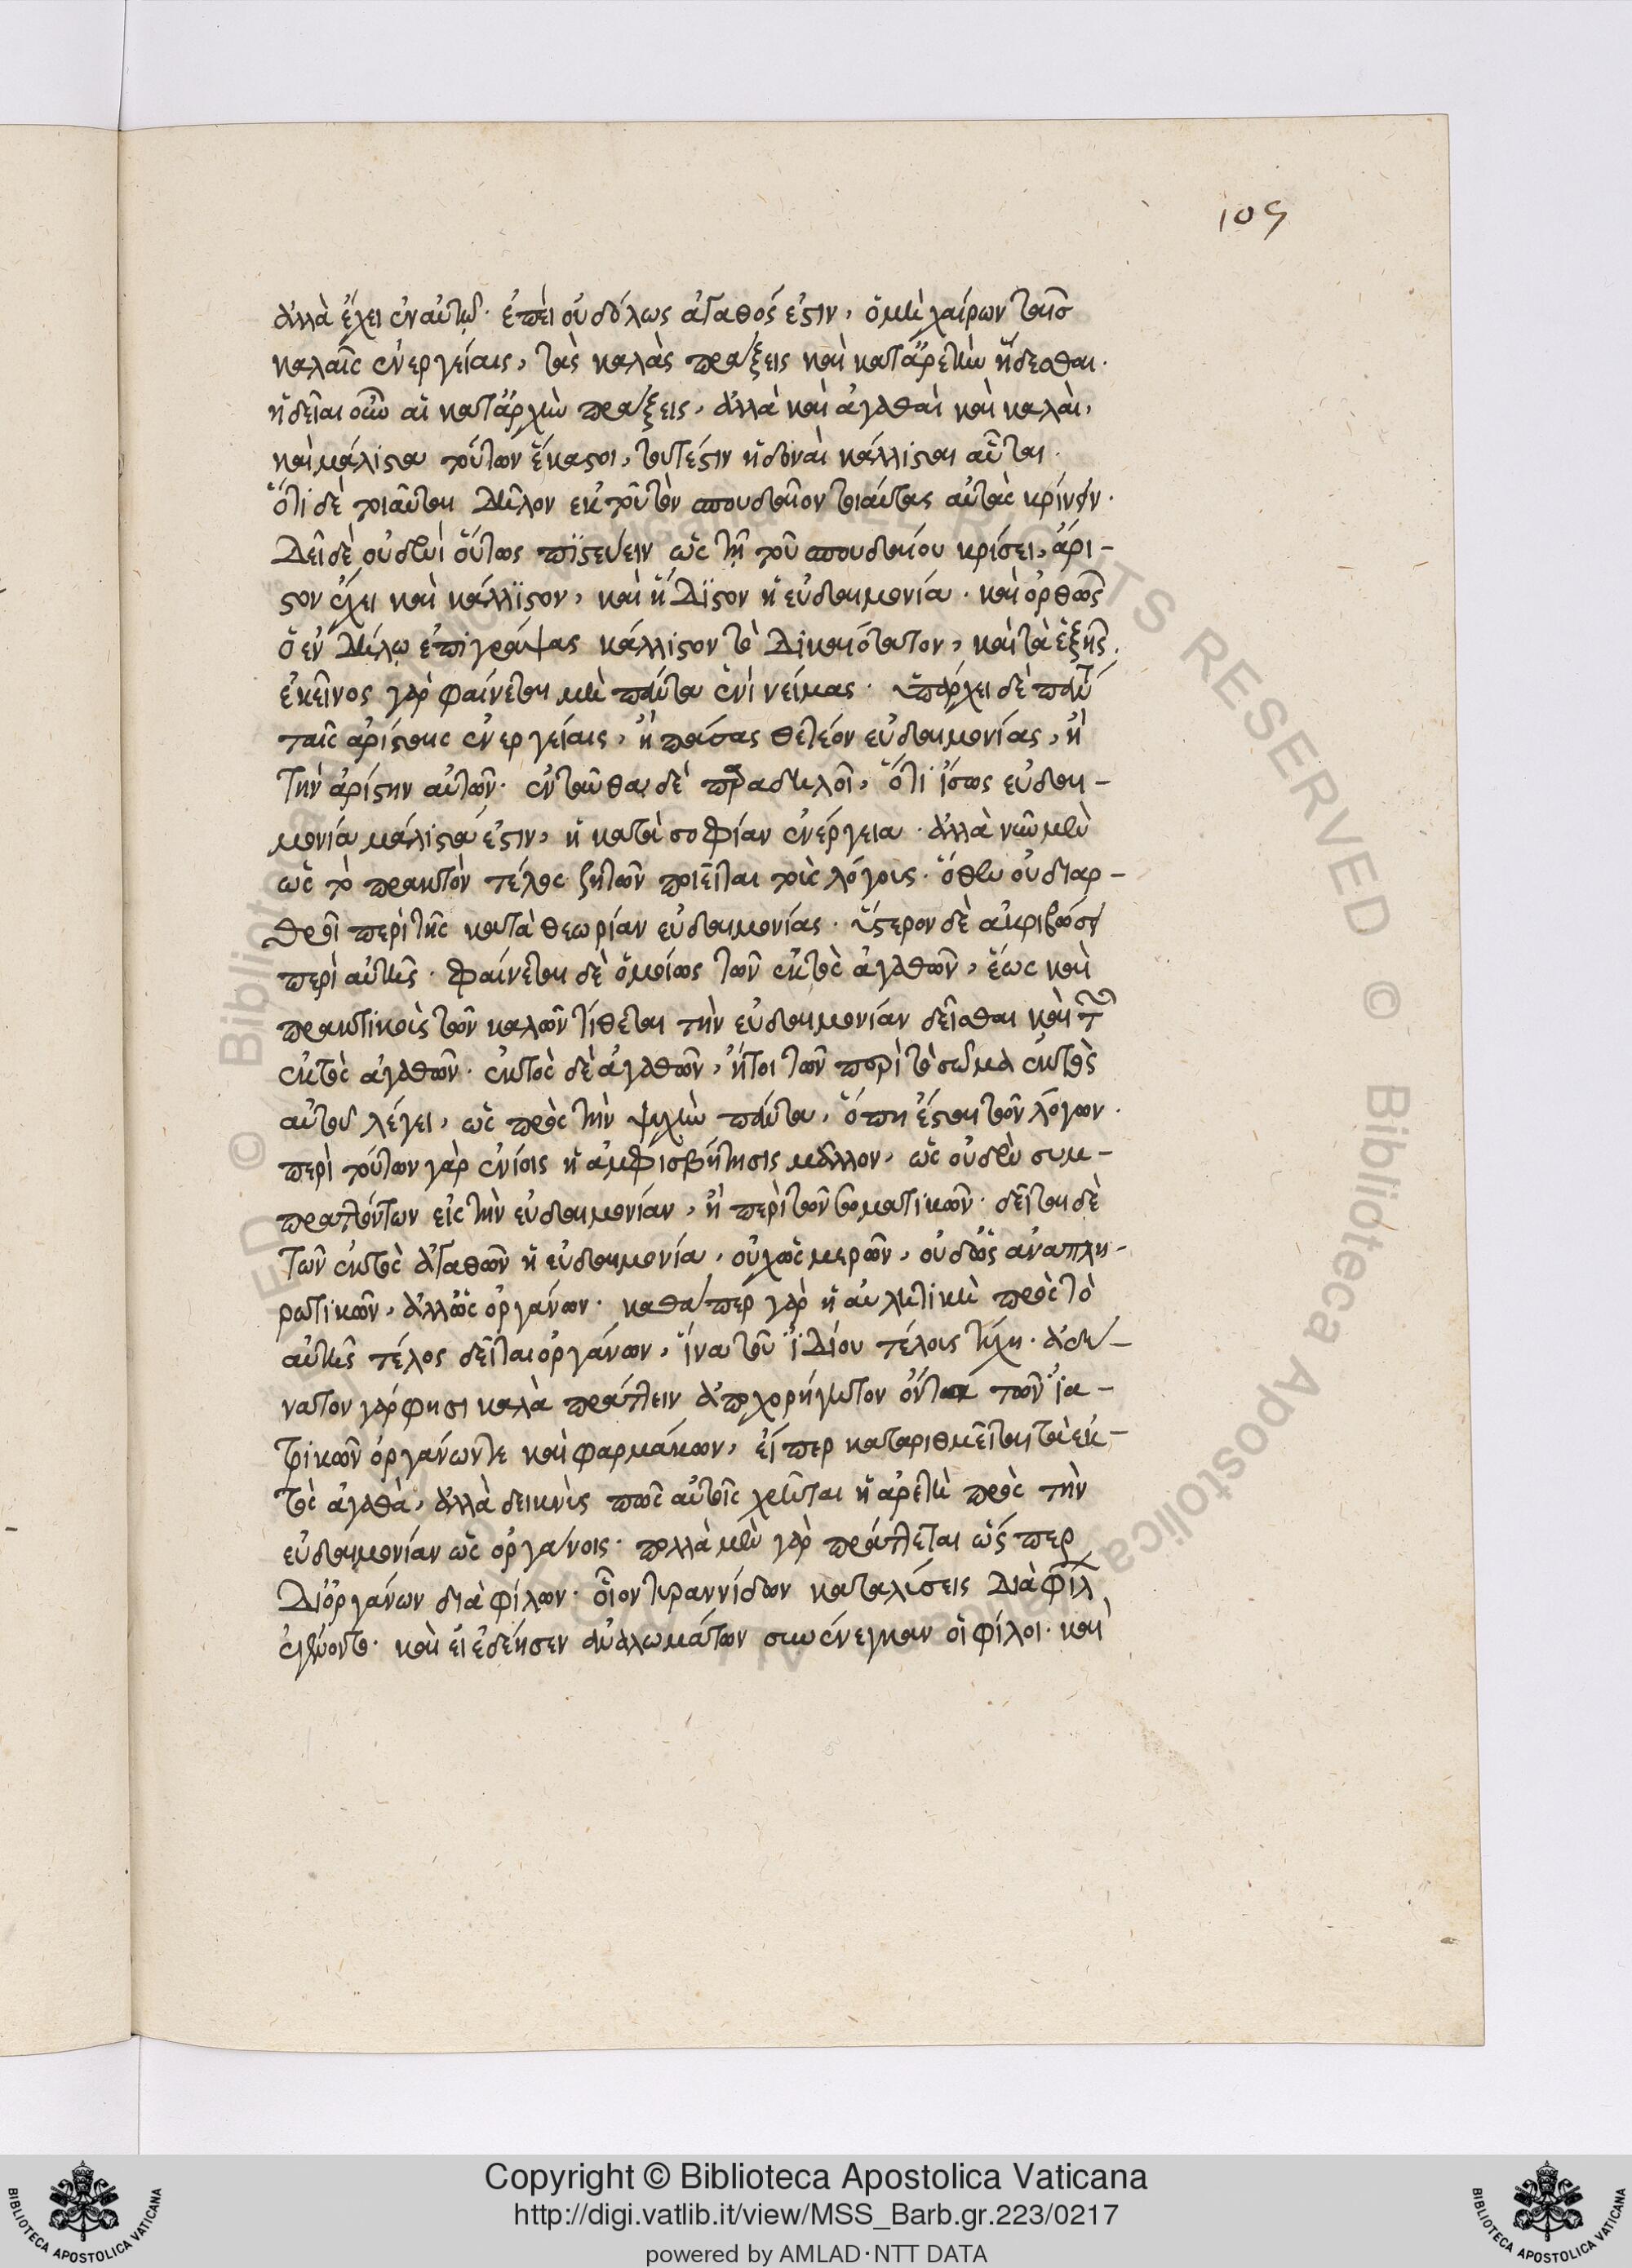 109
ἀλλὰ ἔχει ἐν αὐτῷ· ἐπεὶ οὐδόλως ἀγαθός ἐστιν, ὁ μὴ χαίρων ταῖς
καλαῖς ἐνεργείαις, τὰς καλὰς πράξεις καὶ κατ' ἀρετὴν ἥδεσθαι·
ἡδεῖαι οὖν αἱ κατ' ἀρχὴν πράξεις, ἀλλὰ καὶ ἀγαθαὶ καὶ καλαὶ,
καὶ μάλιστα τούτων ἕκασται, τουτέστιν ἡδοναὶ κάλλισται αὗται·
ὅτι δὲ τοιαῦται δῆλον ἐκ τοῦ τὸν σπουδαῖον τοιαύτας αὐτὰς κρίνειν·
Δεῖ δὲ οὐδενὶ οὕτως πιστεύειν ὡς τῇ τοῦ σπουδαίου κρίσει, ἄρι-
στον ἔχει καὶ κάλλιστον, καὶ ἥδιστον ἡ εὐδαιμονία· καὶ ὀρθῶς
ὁ ἐν Δήλῳ ἐπιγράψας κάλλιστον τὸ δικαιότατον, καὶ τὰ ἑξῆς·
ἐκεῖνος γὰρ φαίνεται μὴ πάντα ἑνὶ νείμας· ὑπάρχει δὲ πάντα
ταῖς ἀρίσταις ἐνεργείαις, ἢ πάσας θετέον εὐδαιμονίας, ἢ
τὴν ἀρίστην αὐτῶν· ἐνταῦθα δὲ παραδηλοῖ, ὅτι ἴσως εὐδαι-
μονία μάλιστά ἐστιν, ἡ κατὰ σοφίαν ἐνέργεια· ἀλλὰ νῦν μὲν
ὡς τὸ πρακτὸν τέλος ζητῶν ποιεῖται τοὺς λόγους· ὅθεν οὐ διαρ-
θροῖ περὶ τῆς κατὰ θεωρίαν εὐδαιμονίας· ὕστερον δὲ ἀκριβώσει
περὶ αὐτῆς· φαίνεται δὲ ὁμοίως τῶν ἐκτὸς ἀγαθῶν, ἕως καὶ
πρακτικοὺς τῶν καλῶν τίθεται τὴν εὐδαιμονίαν δεῖσθαι καὶ τῶν
ἐκτὸς ἀγαθῶν· ἐκτὸς δὲ ἀγαθῶν, ἤτοι τῶν περὶ τὸ σῶμα ἐκτὸς
αὐτοῦ λέγει, ὡς πρὸς τὴν ψυχὴν πάντα, ὅπη ἔσται τῶν λόγων·
περὶ τούτων γὰρ ἐνίοις ἡ ἀμφισβήτησις μᾶλλον, ὡς οὐδὲν συμ-
πραττόντων εἰς τὴν εὐδαιμονίαν, ἢ περὶ τῶν σωματικῶν· δεῖται δὲ
τῶν ἐκτὸς ἀγαθῶν ἡ εὐδαιμονία, οὐχ ὡς μερῶν, οὐδ' ὡς ἀναπλη-
ρωτικῶν, ἀλλ' ὡς ὀργάνων· καθάπερ γὰρ ἡ αὐλητικὴ πρὸς τὸ
αὐτῆς τέλος δεῖται ὀργάνων, ἵνα τοῦ ἰδίου τέλους τύχῃ· ἀδύ-
νατον γάρ φησι καλὰ πράττειν ἀχορήγητον ὄντα τῶν ἰα-
τρικῶν ὀργάνων τε καὶ φαρμάκων, εἴπερ καταριθμεῖται τὰ ἐκ-
τὸς ἀγαθὰ, ἀλλὰ δεικνὺς πῶς αὐτοῖς χρῆται ἡ ἀρετὴ πρὸς τὴν
εὐδαιμονίαν ὡς ὀργάνοις· πολλὰ μὲν γὰρ πράττεται ὥσπερ
Δι' ὀργάνων διὰ φίλων· οἷον τυραννίδων καταλύσεις διὰ φίλ
ἐγένοντο· καὶ εἰ ἐδέησεν ἀναλωμάτων συνένεγκαν οἱ φίλοι· καὶ
Copyright © Biblioteca Apostolica Vaticana
http://digi.vatlib.it/view/MSS_Barb.gr.223/0217
powered by AMLAD·NTT DATA